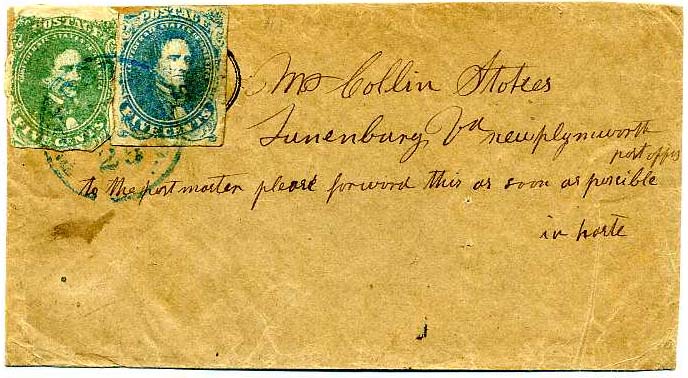 POSTAGE
FIVE CENTS
POSTAGE
FIVE CENTS
Mr Collin Stokes
Lunenburg, Va newplymworth
post offis
to the postmaster please forword this as soon as poscible
in haste